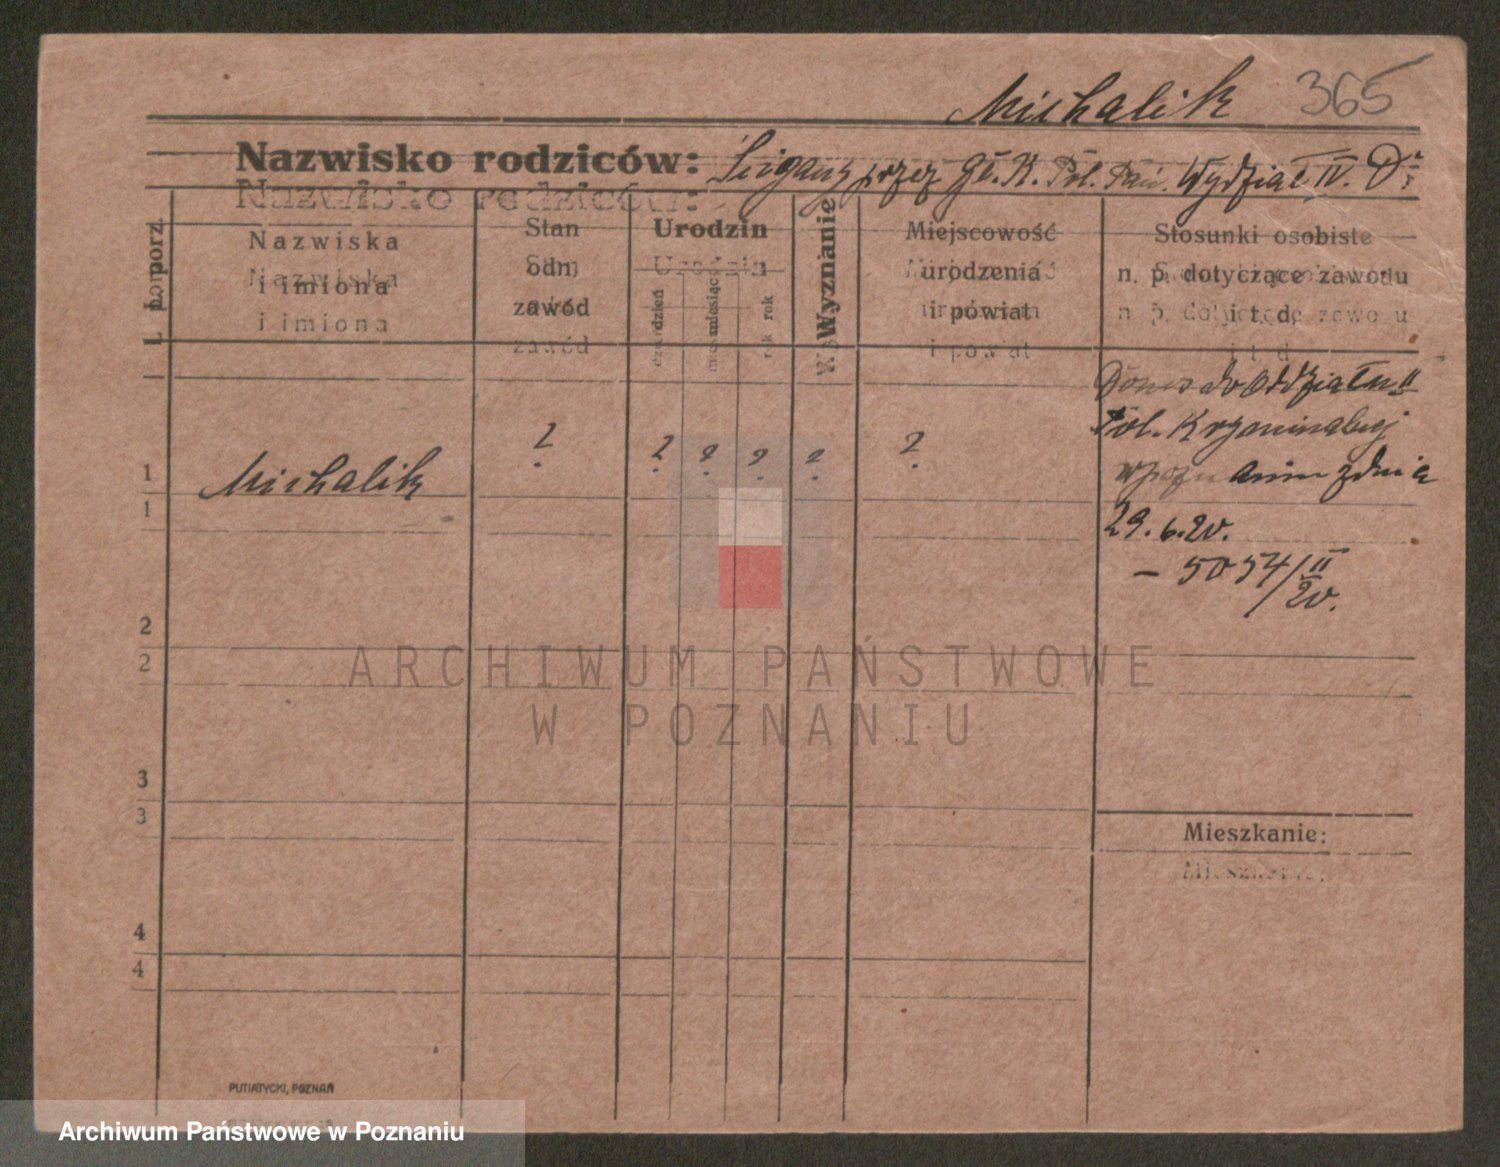 Michalik 365
Nazwisko rodziców: Ścigany przez Gł. K. Pol. Pań. Wydział IV. D
L. porz.
Nazwiska
i imiona
Stan
odn.
zawód
Urodzin
dzień
miesiąc
rok
Wyznanie
Miejscowość
urodzenia
i powiat
Stosunki osobiste
n. p. dotyczące zawodu
i t. d.
1 Michalik ? ? ? ? ? ?
Donos do Oddziału II
Pol. Kryminalnej
w Poznaniu z dnia
29. 6. 20.
– 5054/II 20.
2
3
Mieszkanie:
4
PUTIATYCKI, POZNAŃ
ARCHIWUM PAŃSTWOWE
W POZNANIU
Archiwum Państwowe w Poznaniu